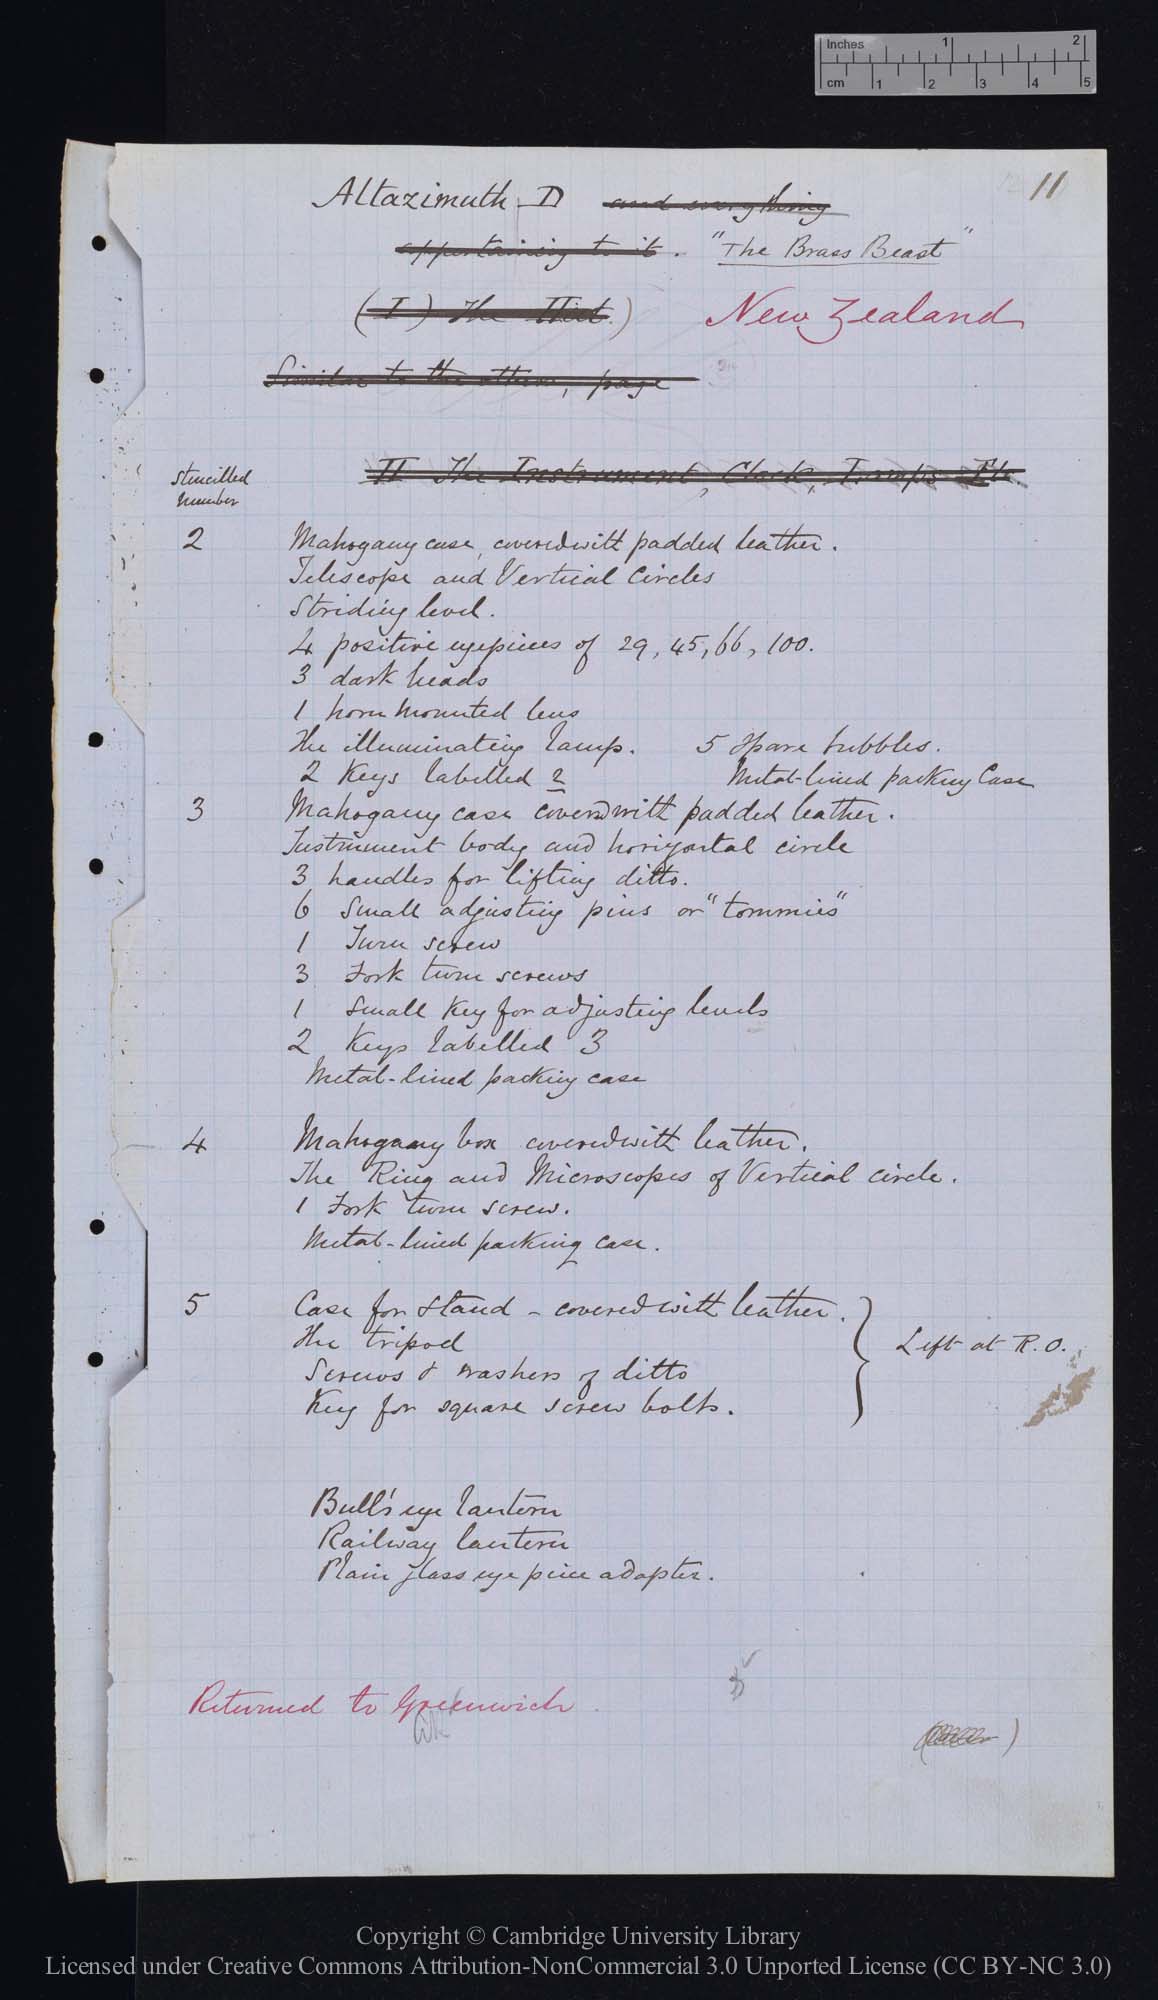 Inches 1 2
cm 1 2 3 4 5
11
Altazimuth D and everything
appertaining to it. "The Brass Beast"
(I) The Hut.) New Zealand
Similar to the others, page
Stencilled
Number
II The Instrument, Clock, Lamps Etc.
2 Mahogany case, covered with padded leather.
Telescope and Vertical Circles
Striding level.
4 positive eyepieces of 29, 45, 66, 100.
3 dark heads
1 horn mounted lens
The illuminating lamp. 5 Spare bubbles.
2 Keys labelled 2 Metal-lined packing Case
3 Mahogany case covered with padded leather.
Instrument body and horizontal circle
3 handles for lifting ditto.
6 Small adjusting pins or "tommies"
1 Turn screw
3 Fork turn screws
1 Small Key for adjusting levels
2 Keys labelled 3
Metal-lined packing case
4 Mahogany box covered with leather.
The Ring and Microscopes of Vertical circle.
1 Fork turn screw.
Metal-lined packing case.
5 Case for stand - covered with leather.
The tripod
Left at R.O.
Screws & washers of ditto
Key for square screw bolts.
Bull's eye lantern
Railway lantern
Plain glass eye piece adapter.
Returned to Greenwich
Copyright © Cambridge University Library
Licensed under Creative Commons Attribution-NonCommercial 3.0 Unported License (CC BY-NC 3.0)